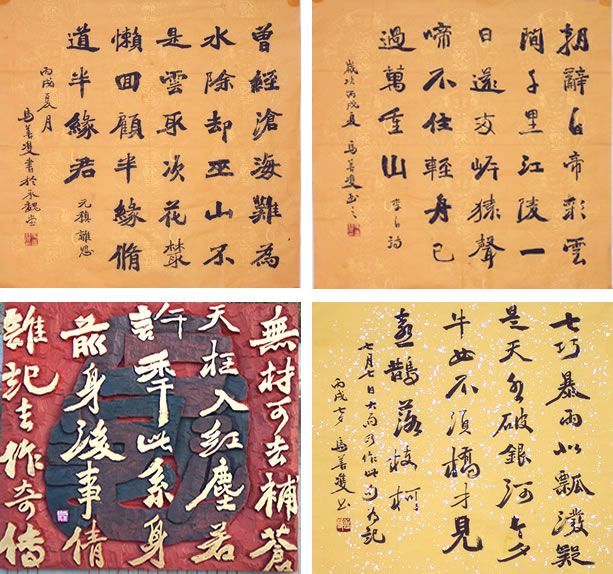 曾經滄海難為
水除却巫山不
是雲取次花叢
懶回顧半緣脩
道半緣君
元稹離思
丙戌夏月
馬善雙書於
朝辭白帝彩雲
間千里江陵一
日還两岸猿聲
啼不住輕舟已
過萬重山
李白詩
歲次丙戌夏馬善雙书之
無材可去補蒼
天枉入紅塵若
許年此系身
前身後事倩
誰記去作奇傳
七巧暴雨似瓢潑疑
是天公破銀河今夕
牛女不須橋才見
喜鵲落枝柯
七月七日大雨乃作此句为記
丙戌七夕馬善雙书